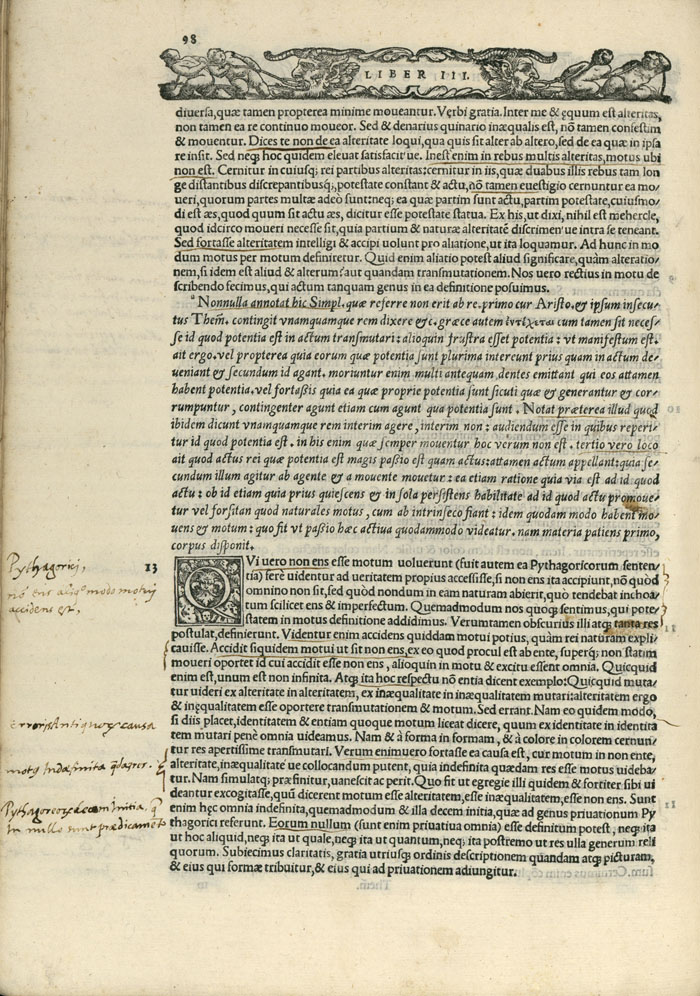 98
LIBER III.
diuersa, quæ tamen propterea minime moueantur. Verbi gratia. Inter me & equum est alteritas,
non tamen ea re continuo moueor. Sed & denarius quinario inæqualis est, nõ tamen confestim
& mouentur. Dices te non de ea alteritate loqui, qua quis sit alter ab altero, sed de ea quæ in ipsa
re insit. Sed neq; hoc quidem eleuat satisfacitue. Inest enim in rebus multis alteritas, motus ubi
non est. Cernitur in cuiusq; rei partibus alteritas: cernitur in iis, quæ duabus illis rebus tam lon
ge distantibus discrepantibusq;, potestate constant & actu, nõ tamen euestigio cernuntur ea mo/
ueri, quorum partes multæ adeò sunt: neq; ea quæ partim sunt actu, partim potestate, cuiusmo/
di est æs, quod quum sit actu æs, dicitur esse potestate statua. Ex his, ut dixi, nihil est mehercle,
quod idcirco moueri necesse sit, quia partium & naturæ alteritatẽ discrimẽ ue intra se teneant.
Sed fortasse alteritatem intelligi & accipi uolunt pro aliatione, ut ita loquamur. Ad hunc in mo
dum motus per motum definiretur. Quid enim aliatio potest aliud significare, quàm alteratio/
nem, si idem est aliud & alterum? aut quandam transmutationem. Nos uero rectius in motu de
scribendo fecimus, qui actum tanquam genus in ea definitione posuimus.
Nonnulla annotat hic Simpl. quæ referre non erit ab re. primo cur Aristo. & ipsum insecu-
tus Them. contingit vnamquamque rem dixere &c. græce autem ἐντέχεται cum tamen sit neces-
se id quod potentia est in actum transmutari: alioquin frustra esset potentia: vt manifestum est.
ait ergo. vel propterea quia eorum quæ potentia sunt plurima intereunt prius quam in actum de-
ueniant & secundum id agant. moriuntur enim multi antequam dentes emittant qui eos attamen
habent potentia. vel fortaßis quia ea quæ proprie potentia sunt sicuti quæ & generantur & cor-
rumpuntur, contingenter agunt etiam cum agunt qua potentia sunt. Notat præterea illud quod
ibidem dicunt vnamquamque rem interim agere, interim non: audiendum esse in quibus reperi-
tur id quod potentia est. in his enim quæ semper mouentur hoc verum non est. tertio vero loco
ait quod actus rei quæ potentia est magis paßio est quam actus: attamen actum appellant: quia se-
cundum illum agitur ab agente & a mouente mouetur: ea etiam ratione quia via est ad id quod
actu: ob id etiam quia prius quiescens & in sola persistens habilitate ad id quod actu promoue-
tur vel forsitan quod naturales motus, cum ab intrinseco fiant: idem quodam modo habent mo-
uens & motum: quo fit vt paßio hæc actiua quodammodo videatur. nam materia patiens primo,
corpus disponit.
13
QVi uero non ens esse motum uoluerunt (fuit autem ea Pythagoricorum senten
tia) ferè uidentur ad ueritatem propius accessisse, si non ens ita accipiunt, nõ quòd
omnino non sit, sed quòd nondum in eam naturam abierit, quò tendebat inchoa
tum scilicet ens & imperfectum. Quemadmodum nos quoq; sentimus, qui pote/
statem in motus definitione addidimus. Verumtamen obscurius illi atq; tanta res
postulat, definierunt. Videntur enim accidens quiddam motui potius, quàm rei naturam expli/
cauisse. Accidit siquidem motui ut sit non ens, ex eo quod procul est ab ente, superq; non statim
moueri oportet id cui accidit esse non ens, alioquin in motu & excitu essent omnia. Quicquid
enim est, unum est non infinita. Atq; ita hoc respectu nõ entia dicent exemplo: Quicquid muta/
tur uideri ex alteritate in alteritatem, ex inæqualitate in inæqualitatem mutari: alteritatem ergo
& inęqualitatem esse oportere transmutationem & motum. Sed errant. Nam eo quidem modo,
si diis placet, identitatem & entiam quoque motum liceat dicere, quum ex identitate in identita
tem mutari penè omnia uideamus. Nam & à forma in formam, & à colore in colorem cernun/
tur res apertissime transmutari. Verum enimuero fortasse ea causa est, cur motum in non ente,
alteritate, inæqualitate ue collocandum putent, quia indefinita quædam res esse motus uideba/
tur. Nam simulatq; præfinitur, uanescit ac perit. Quo fit ut egregie illi quidem & fortiter sibi ui
deantur excogitasse, quũ dicerent motum esse alteritatem, esse inæqualitatem, esse non ens. Sunt
enim hęc omnia indefinita, quemadmodum & illa decem initia, quæ ad genus priuationum Py
thagorici referunt. Eorum nullum (sunt enim priuatiua omnia) esse definitum potest, neq; ita
ut hoc aliquid, neq; ita ut quale, neq; ita ut quantum, neq; ita postremo ut res ulla generum reli
quorum. Subiecimus claritatis, gratia utriusq; ordinis descriptionem quandam atq; picturam,
& eius qui formæ tribuitur, & eius qui ad priuationem adiungitur.
Pythagorici,
accidens est,
causa
motus Indefinita
in nullo sunt prædicamẽto